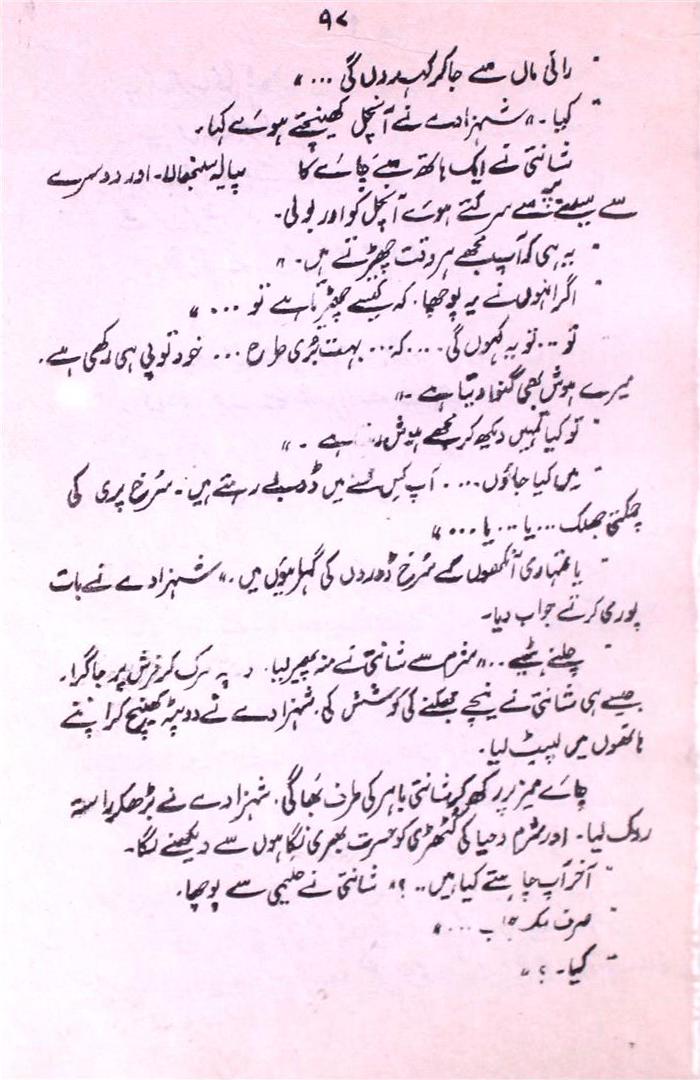 ۹۷
" رانی ماں سے جا کر کہہ دوں گی ..."
" کیا۔" شہزادے نے آنچل کھینچتے ہوئے کہا۔
شانتی نے ایک ہاتھ سے چائے کا پیالہ سنبھالا۔ اور دوسرے
سے سینے پر سے سرکتے ہوئے آنچل کو اور بولی۔
" یہ ہی کہ آپ مجھے ہر وقت چھیڑتے ہیں۔"
" اگر انہوں نے یہ پوچھا۔ کہ کیسے چھیڑتا ہے تو ..."
" تو... تو یہ کہوں گی .... کہ... بہت بُری طرح ... خود تو پی ہی رکھی ہے۔
میرے ہوش بھی گنوا دیتا ہے۔"
" تو کیا تمہیں دیکھ کر مجھے ہوش ہے۔"
" میں کیا جانوں.... آپ کس نشے میں ڈوبے رہتے ہیں۔ سُرخ پری کی
چھلکتی جھلک ... یا ... یا ..."
" یا تمہاری آنکھوں کے سُرخ ڈوروں کی گہرائیوں میں۔" شہزادے نے بات
پوری کرتے جواب دیا۔
" چلئے ہٹیے .." شرم سے شانتی نے منہ پھیر لیا۔ دوپٹہ سرک کر فرش پر جا گرا۔
جیسے ہی شانتی نے نیچے جھکنے کی کوشش کی۔ شہزادے نے دوپٹہ کھینچ کر اپنے
ہاتھوں میں لپیٹ لیا۔
چائے میز پر رکھ کر شانتی باہر کی طرف بھاگی۔ شہزادے نے بڑھ کر راستہ
روک لیا۔ اور شرم و حیا کی گٹھڑی کو حسرت بھری نگاہوں سے دیکھنے لگا۔
" آخر آپ چاہتے کیا ہیں..؟" شانتی نے حلیمی سے پوچھا۔
" صرف ایک ..."
" کیا۔ ؟"